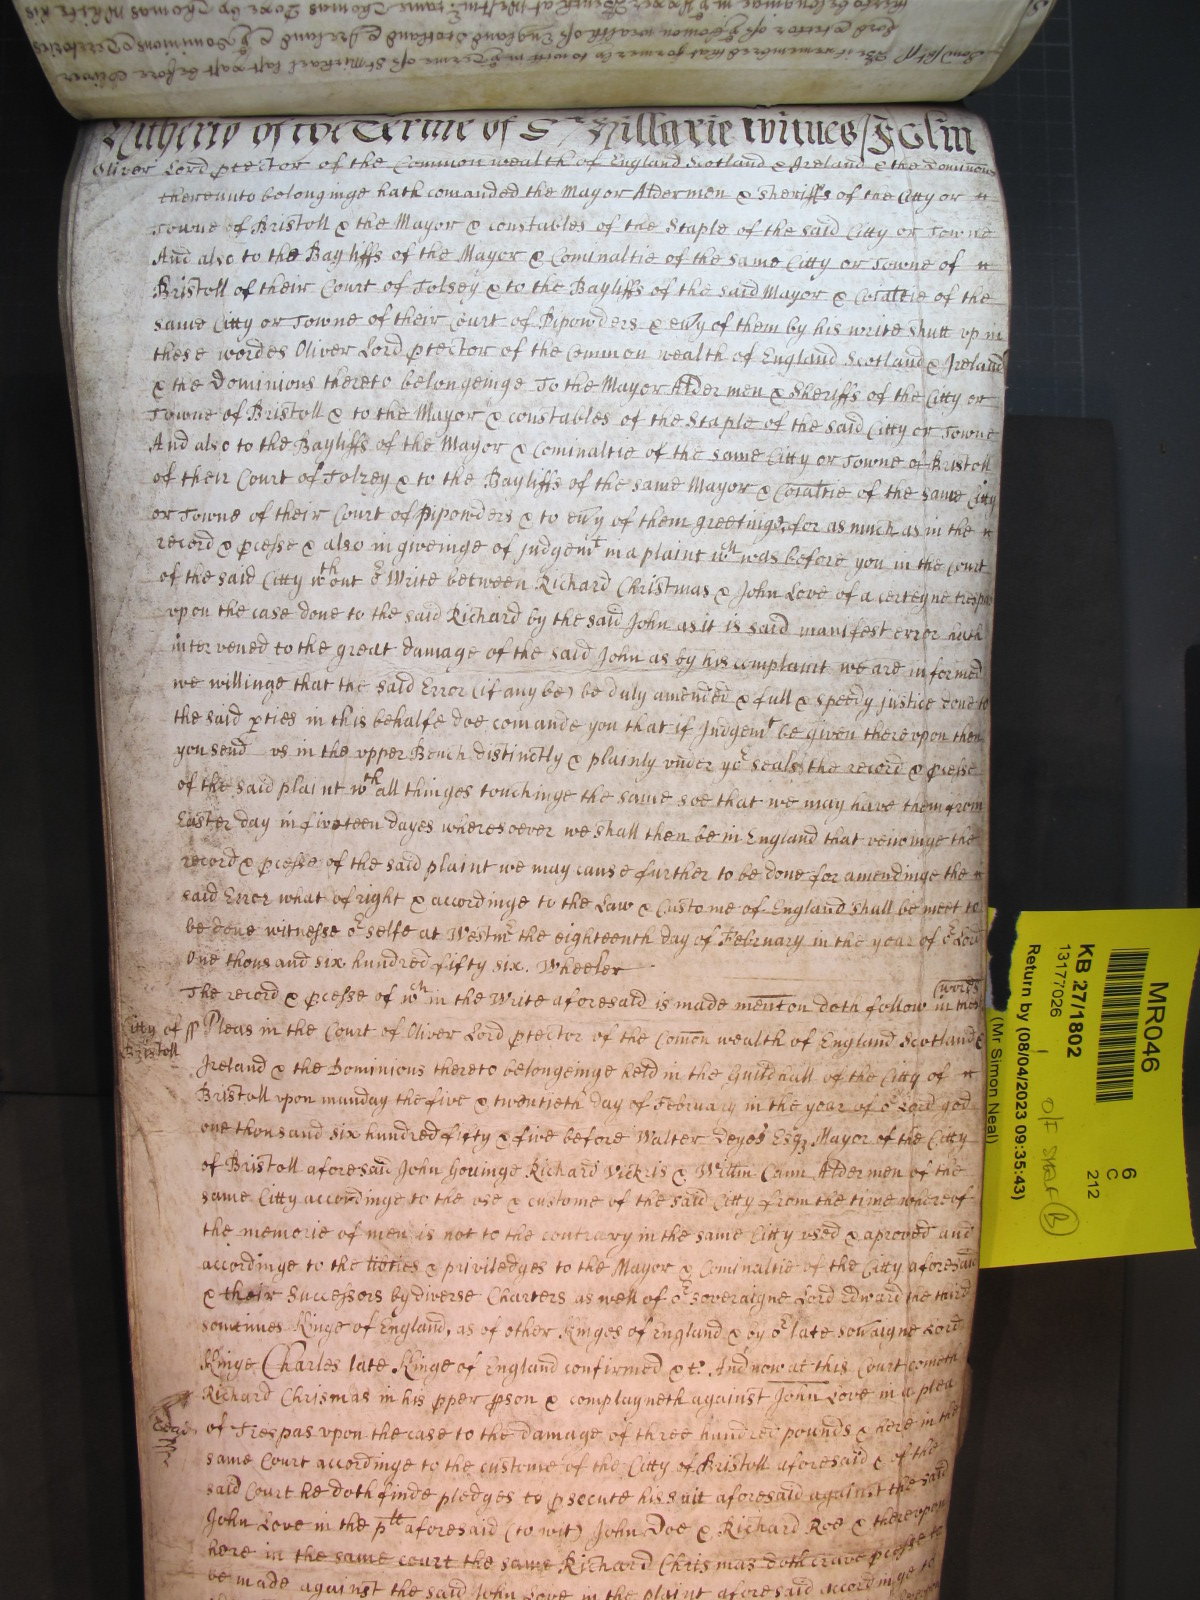 Hitherto of the Terme of St Hillarie witnes J Glin
Oliver Lord ptector of the Common wealth of England Scotland & Ireland & the Dominions
thereunto belonginge hath comanded the Mayor Aldermen & Sheriffs of the Citty or
Towne of Bristoll & the Mayor & constables of the Staple of the said Citty or Towne
And also to the Bayliffs of the Mayor & Cominaltie of the same Citty or Towne of
Bristoll of their Court of Tolsey & to the Bayliffs of the said Mayor & Coialtie of the
same Citty or Towne of their Court of Pipowders & evy of them by his write shutt vp in
these wordes Oliver Lord ptector of the Common wealth of England Scotland & Ireland
& the Dominions thereto belongeinge To the Mayor Aldermen & Sheriffs of the Citty or
Towne of Bristoll & to the Mayor & constables of the Staple of the said Citty or Towne
And also to the Bayliffs of the Mayor & Cominaltie of the same Citty or Towne of Bristoll
of their Court of Tolzey & to the Bayliffs of the same Mayor & Coialtie of the same Citty
or Towne of their Court of Pipowders & to evy of them greetinge for as much as in the
record & pcesse & also in giveinge of judgemt in a plaint wch was before you in the Court
of the said Citty wthout or Write between Richard Christmas & John Love of a certeyne trespas
vpon the case done to the said Richard by the said John as it is said manifest error hath
intervened to the great damage of the said John as by his complaint we are informed
we willinge that the said Error (if any be) be duly amended & full & speedy justice done to
the said pties in this behalfe doe comande you that if Judgemt be given therevpon then
you send vs in the vpper Bench distinctly & plainly vnder yor seals the record & pcesse
of the said plaint wth all thinges touchinge the same soe that we may have them from
Easter day in fiveteen dayes wheresoever we shall then be in England that veiwinge the
record & pcesse of the said plaint we may cause further to be done for amendinge the
said Error what of right & accordinge to the Law & Custome of England shall be meet to
be done witnesse or selfe at Westmr the eighteenth day of February in the year of or Lord
One thousand six hundred fifty six. Wheeler
The record & pcesse of wch in the Write aforesaid is made menton doth follow in thes words
Citty of Bristoll ss Pleas in the Court of Oliver Lord ptector of the Comon wealth of England Scotland &
Ireland & the Dominions thereto belongeinge held in the Guildhall of the Citty of
Bristoll vpon munday the five & twentieth day of February in the year of or Lord god
one thousand six hundred fifty & five before Walter Deyos Esqz Mayor of the Citty
of Bristoll aforesaid John Gouinge Richard Vickris & Willm Cann Aldermen of the
same Citty accordinge to the vse & custome of the said Citty from the time whereof
the memorie of men is not to the contrary in the same Citty vsed & aproved and
accordinge to the libties & priviledges to the Mayor & Cominaltie of the Citty aforesaid
& their Successors by diverse Charters as well of or soveraigne Lord Edward the third
somtimes Kinge of England, as of other Kinges of England & by or late sovaigne Lord
Kinge Charles late Kinge of England confirmed &c. And now at this Court cometh
Richard Chrismas in his pper pson & complayneth against John Love in a plea
of Trespas vpon the case to the damage of three hundred pounds & here in the
same Court accordinge to the custome of the Citty of Bristoll aforesaid & of the
said Court he doth finde pledges to psecute his suit aforesaid against the said
John Love in the plt aforesaid (to wit) John Doe & Richard Roe & therevpon
here in the same court the same Richard Chrismas doth crave pcesse to
be made against the said John Love in the plaint aforesaid accordinge to
MR046
KB 27/1802
13177026
Return by (08/04/2023 09:35:43)
(Mr Simon Neal)
6
C
212